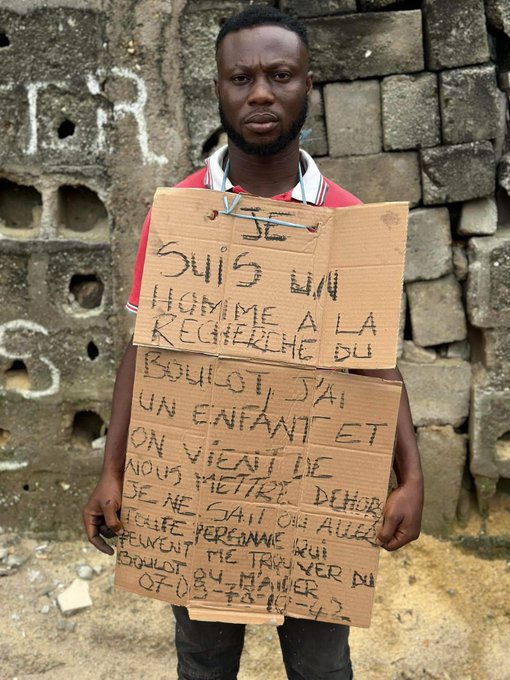 JE
SUIS UN
HOMME A LA
RECHERCHE DU
BOULOT, J'AI
UN ENFANT ET
ON VIENT DE
NOUS METTRE DEHOR
JE NE SAIT OU ALLER
TOUTE PERSONNE QUI
PEUVENT ME TROUVER DU
BOULOT MAIDER